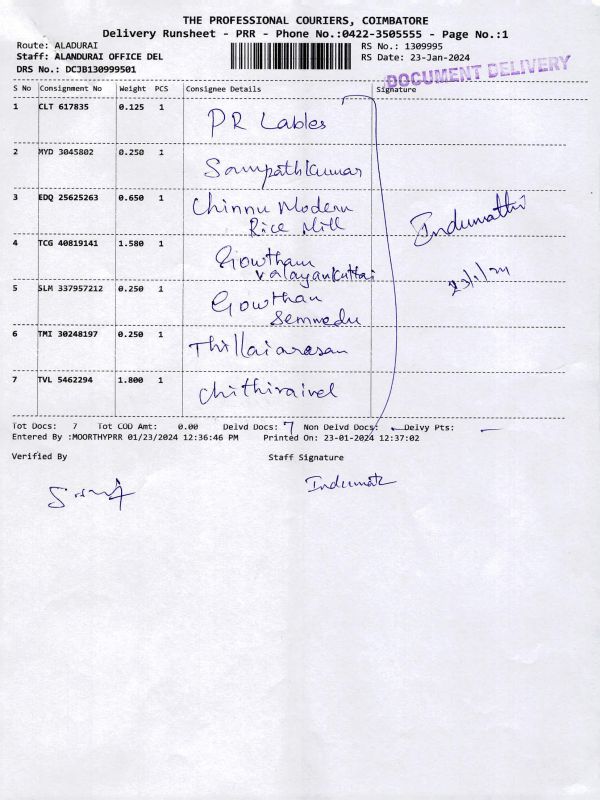 THE PROFESSIONAL COURIERS, COIMBATORE
Delivery Runsheet - PRR - Phone No.:0422-3505555 - Page No.:1
Route: ALADURAI
RS No.: 1309995
Staff: ALANDURAI OFFICE DEL
RS Date: 23-Jan-2024
DRS No.: DCJB130999501
DOCUMENT DELIVERY
S No Consignment No Weight PCS Consignee Details Signature
1 CLT 617835 0.125 1 PR Lables
2 MYD 3045802 0.250 1 Sampathkumar
3 EDQ 25625263 0.650 1 Chinnu Modern
Rice Mill
Indumathi
4 TCG 40819141 1.580 1 Gowtham
Valayankuttai
23/1/24
5 SLM 337957212 0.250 1 Gowthan
Semmedu
6 TMI 30248197 0.250 1 Thillaiarasan
7 TVL 5462294 1.800 1 Chithiraivel
Tot Docs: 7 Tot COD Amt: 0.00 Delvd Docs: 7 Non Delvd Docs: - Delvy Pts: -
Entered By :MOORTHYPRR 01/23/2024 12:36:46 PM Printed On: 23-01-2024 12:37:02
Verified By Staff Signature
Indumat